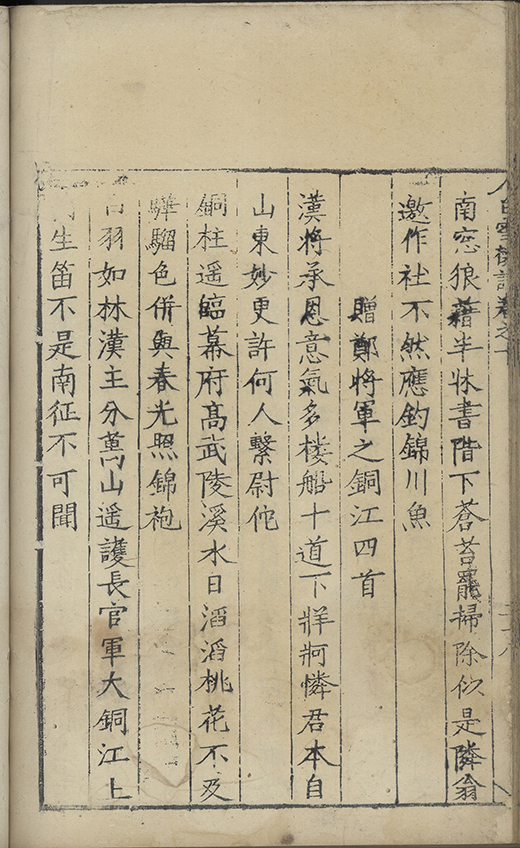 白雪樓詩卷之十
南窓狼藉半牀書階下蒼苔罷掃除似是隣翁
邀作社不然應釣錦川魚
贈鄭將軍之銅江四首
漢將承恩意氣多楼船十道下牂牁憐君本自
山東妙更許何人繫尉佗
銅柱遥臨幕府髙武陵溪水日滔滔桃花不及
驊騮色併與春光照錦袍
白羽如林漢主分萬山遥護長官軍大銅江上
生笛不是南征不可聞